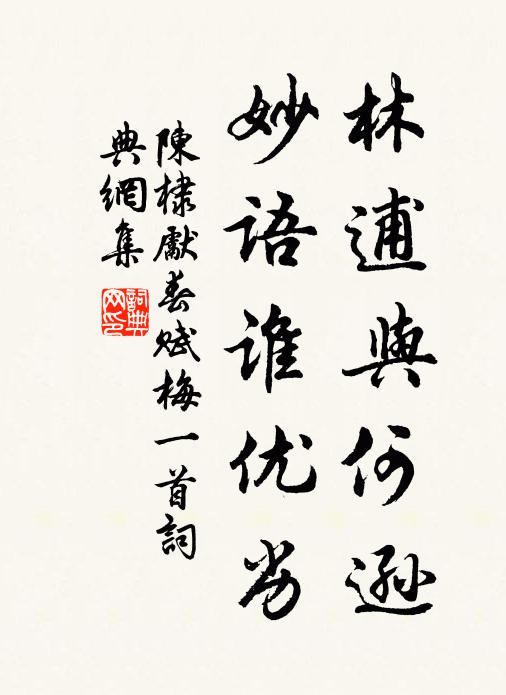 林逋與何遜
妙語誰优劣
陳棣獻春賦梅一首詞
典網集
詞典网印